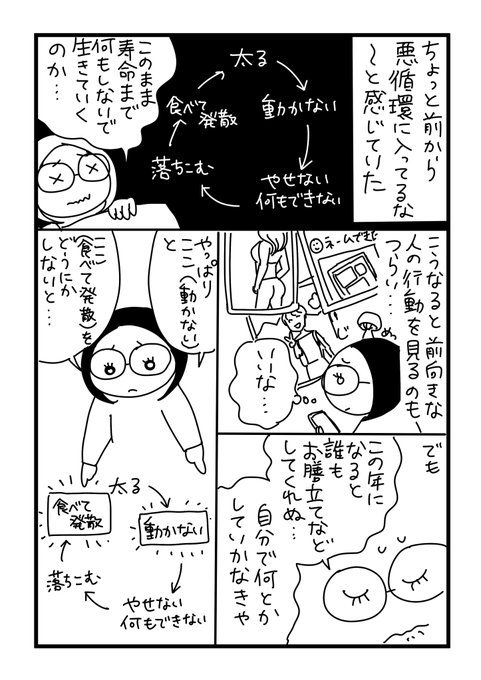 ちょっと前から
悪循環に入ってるな
〜と感じていた
太る
動かない
やせない
何もできない
落ちこむ
食べて
発散
このまま
寿命まで
何もしないで
生きていく
のか…
こうなると前向きな
人の行動を見るのも
つらい…
ネームできた
じ
めっ
いいな…
でも
この年に
なると
誰も
お膳立てなど
してくれぬ…
自分で何とか
していかなきゃ
やっぱり
ここ(動かない)
と
ここ
(食べて発散)を
どうにか
しないと…
太る
動かない
やせない
何もできない
落ちこむ
食べて
発散